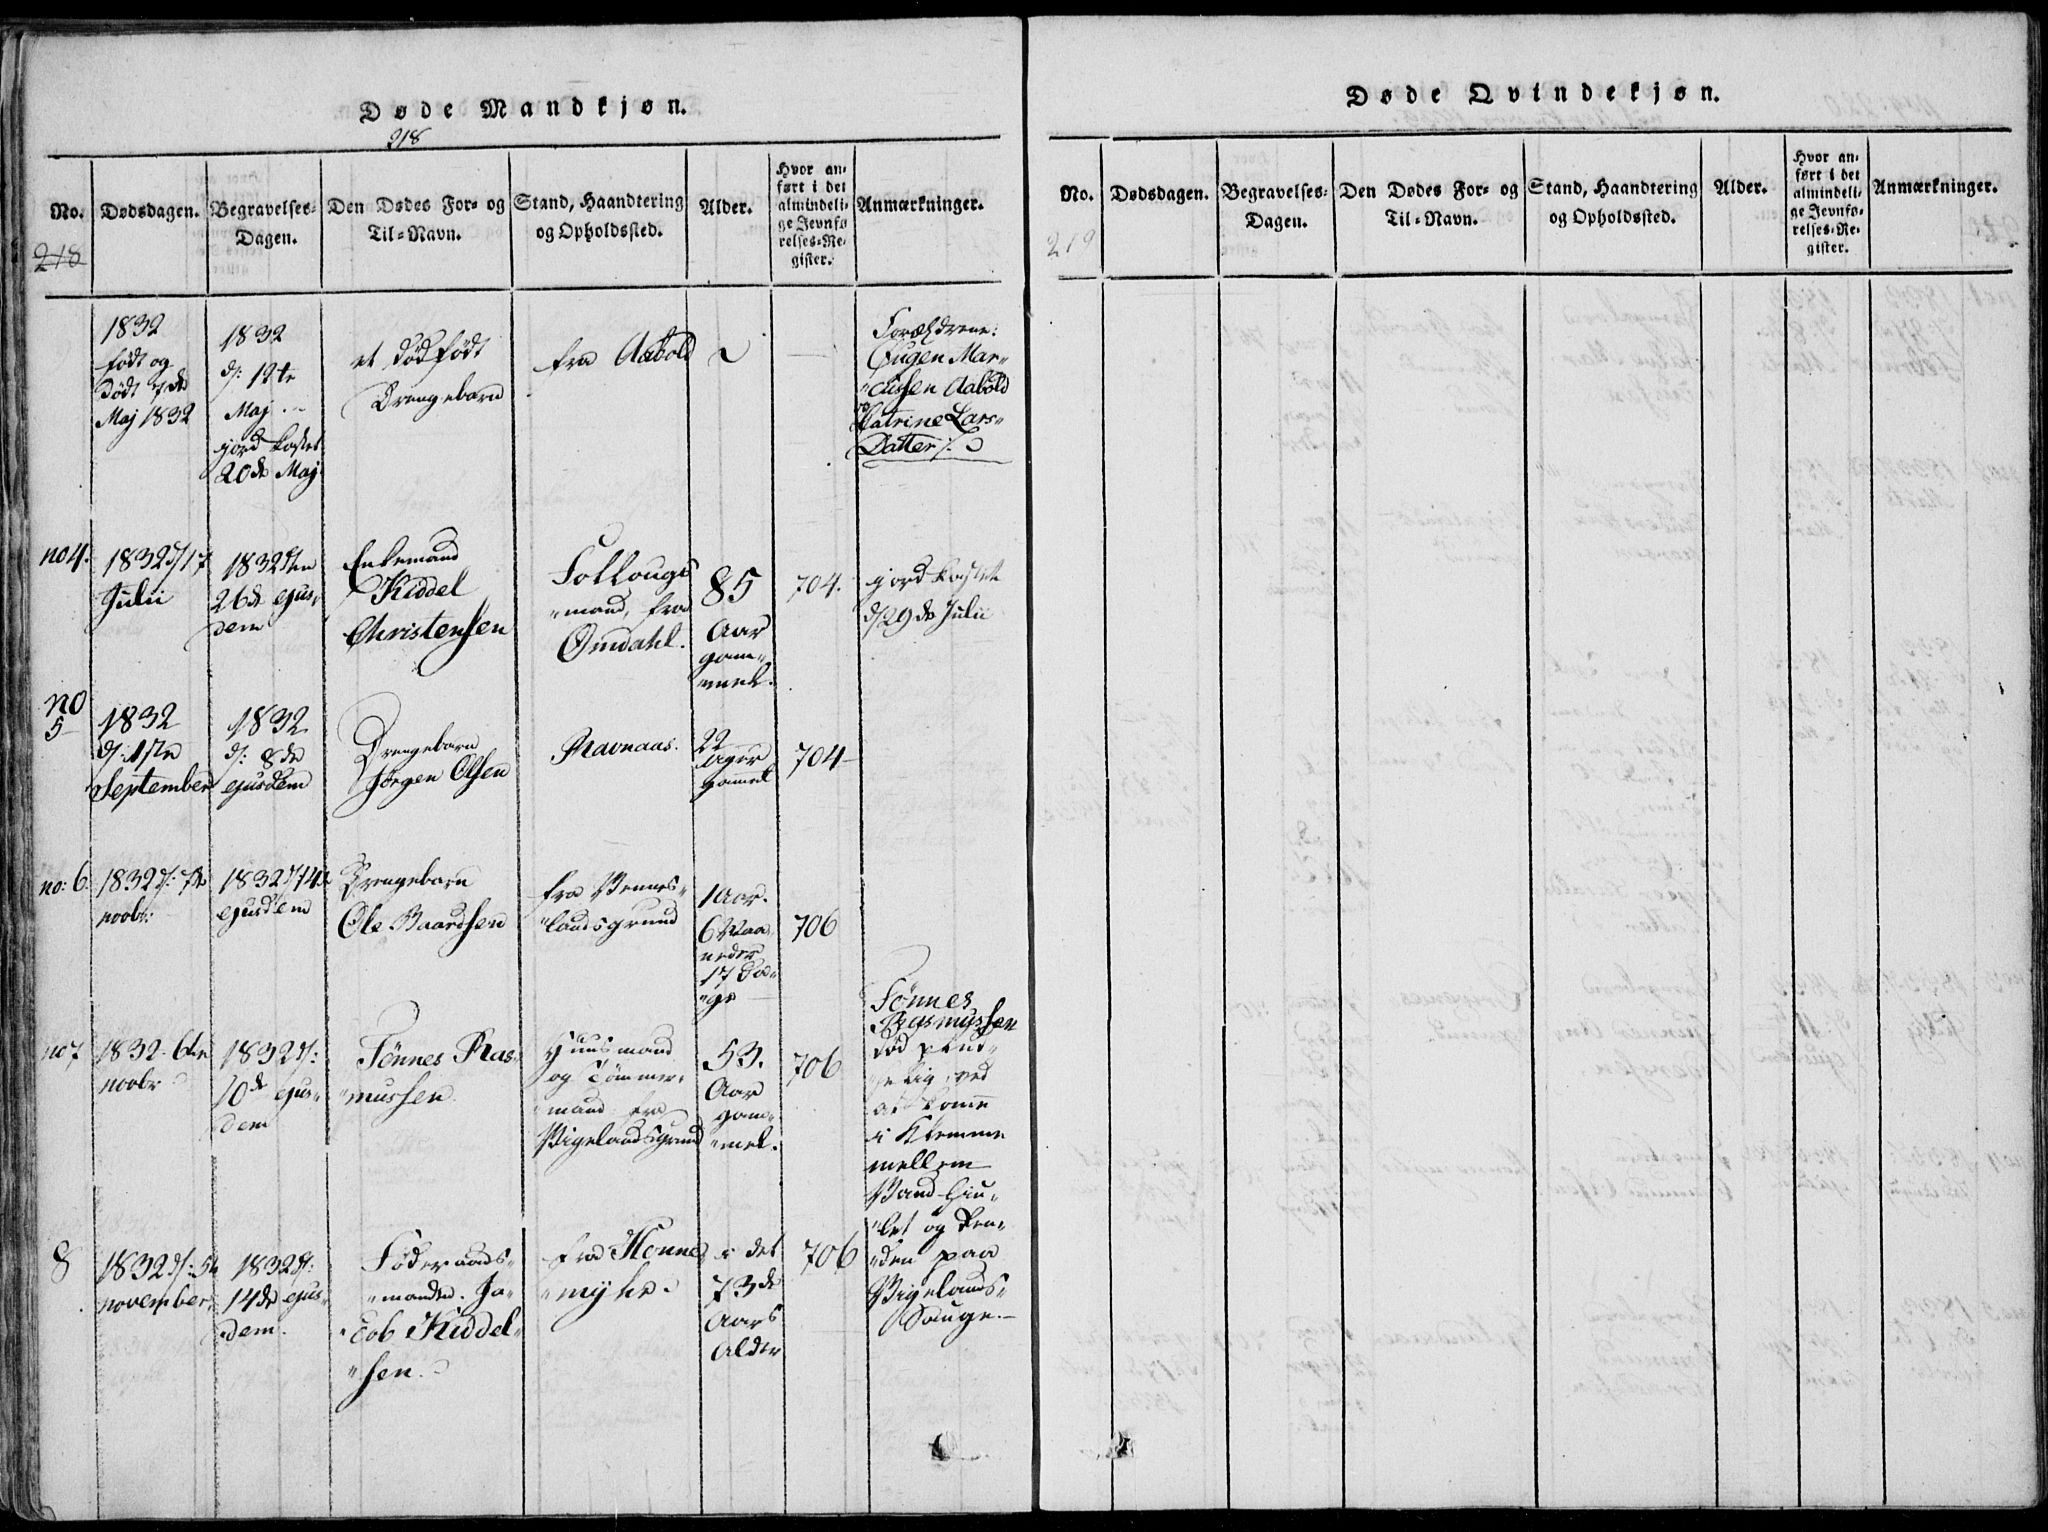 Døde Mandkjøn.
218
No.
Dødsdagen.
Begravelses-
Dagen.
Den Dødes For- og
Til-Navn.
Stand, Haandtering
og Opholdssted.
Alder.
Hvor an-
ført i det
almindeli-
ge Jevnfø
relses-Re-
gister.
Anmærkninger.
218
1832
født og
Dødt 7de
Maj 1832
1832
d: 12te
Maj
gjord kastet
20de Maj
et dødfødt
Drengebarn
fra Aabold
Forældrene:
Eugen Mar-
"cussen Aabold
Catrine Lars-
Datter
no 4.
1832 d/17
Julii
1832 den
26de ejus-
dem
Enkemand
Kiddel
Christensen
Follougs
"mand, fra
Omdahl.
85
Aar
gam-
mel.
704.
gjord kastet
d/29de Julii
no
5
1832
d: 1ste
September
1832
d: 8de
ejusdem
Drengebarn
Jørgen Olsen
Ravnaas.
22
Uger
gammel
704
no: 6.
1832 d: 7de
novbr:
1832 d/14de
ejusdem
Drengebarn
Ole Baardsen
fra Vennes-
"landsgrund
1 Aar.
6 Maa
neder
17 Da-
"ge
706
no 7
1832. 6te
novbr
1832 d:
10de ejus-
dem
Tønnes Ras-
"mussen.
Huusmand
og Tømmer-
mand fra
Vigelandsgrund
53.
Aar
gam-
"mel.
706
Tønnes
Rasmussen
død
ved
at komme
i Klemme
mellem
Vand-Hiu-
"let og Ren-
"den paa
Vigelands-
Sauge.
8
1832 d: 5te
november
1832 d:
14de ejus-
dem.
Føderaads-
"manden. Ja-
"cob Kiddel-
"sen.
fra Honne
"myhr.
i det
73de
Aars
Alder
706
Døde Qvindekjøn.
No.
Dødsdagen.
Begravelses-
Dagen.
Den Dødes For- og
Til-Navn.
Stand, Haandtering
og Opholdssted.
Alder.
Hvor an-
ført i det
almindeli-
ge Jevnfø-
relses-Re-
gister.
Anmærkninger.
219